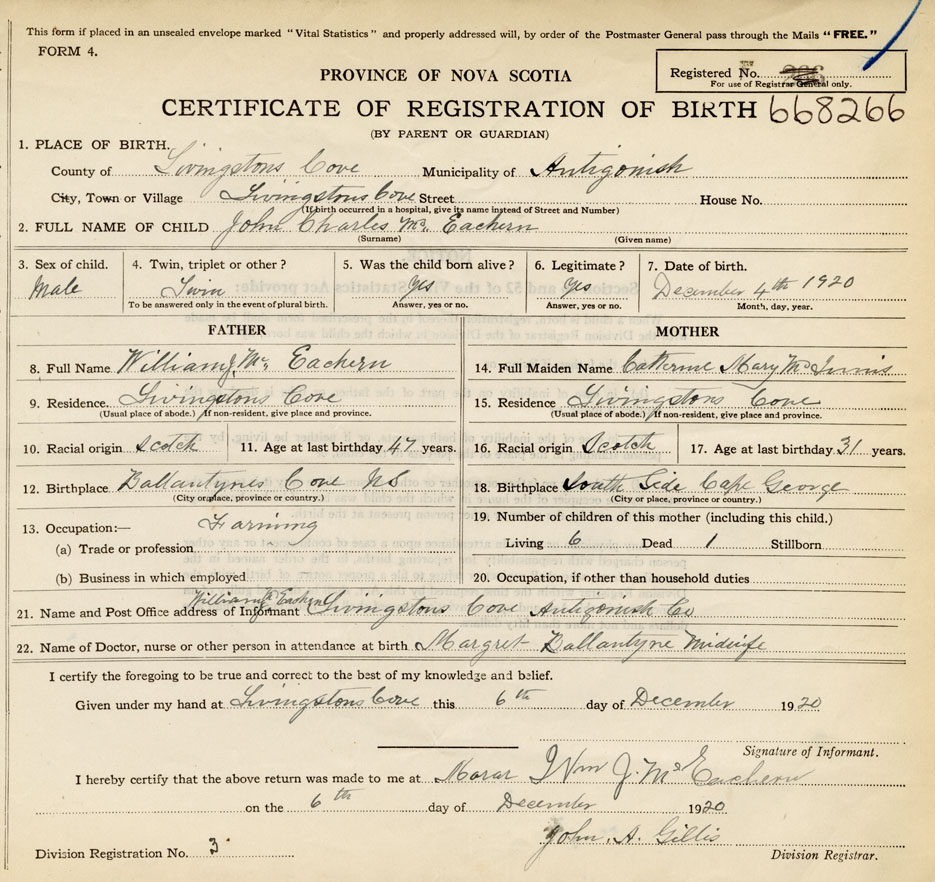 This form if placed in an unsealed envelope marked "Vital Statistics" and properly addressed will, by order of the Postmaster General pass through the Mails "FREE."
FORM 4.
Registered No.
For use of Registrar General only.
PROVINCE OF NOVA SCOTIA
CERTIFICATE OF REGISTRATION OF BIRTH 668266
(BY PARENT OR GUARDIAN)
1. PLACE OF BIRTH.
County of Livingstons Cove Municipality of Antigonish
City, Town or Village Livingstons Cove Street House No.
(If birth occurred in a hospital, give its name instead of Street and Number)
2. FULL NAME OF CHILD John Charles Mc Eachern
(Surname) (Given name)
3. Sex of child. 4. Twin, triplet or other? 5. Was the child born alive? 6. Legitimate? 7. Date of birth.
Male Twin yes yes December 4th 1920
To be answered only in the event of plural birth. Answer, yes or no. Answer, yes or no. Month, day, year.
FATHER MOTHER
8. Full Name William J. Mc Eachern 14. Full Maiden Name Catherine Mary McInnis
9. Residence. Livingstons Cove 15. Residence Livingstons Cove
(Usual place of abode.) If non-resident, give place and province. (Usual place of abode.) If non-resident, give place and province.
10. Racial origin Scotch 11. Age at last birthday 47 years. 16. Racial origin Scotch 17. Age at last birthday 31 years.
12. Birthplace Ballantynes Cove NS 18. Birthplace South Side Cape George
(City or place, province or country.) (City or place, province or country.)
13. Occupation:— Farming 19. Number of children of this mother (including this child.)
(a) Trade or profession Living 6 Dead 1 Stillborn
(b) Business in which employed 20. Occupation, if other than household duties
21. Name and Post Office address of Informant William J Mc Eachern Livingstons Cove Antigonish Co
22. Name of Doctor, nurse or other person in attendance at birth Margret Ballantyne Midwife
I certify the foregoing to be true and correct to the best of my knowledge and belief.
Given under my hand at Livingstons Cove this 6th day of December 1920
Signature of Informant.
I hereby certify that the above return was made to me at Morar Wm J. Mc Eachern
on the 6th day of December 1920
John. A. Gillis
Division Registration No. 3 Division Registrar.